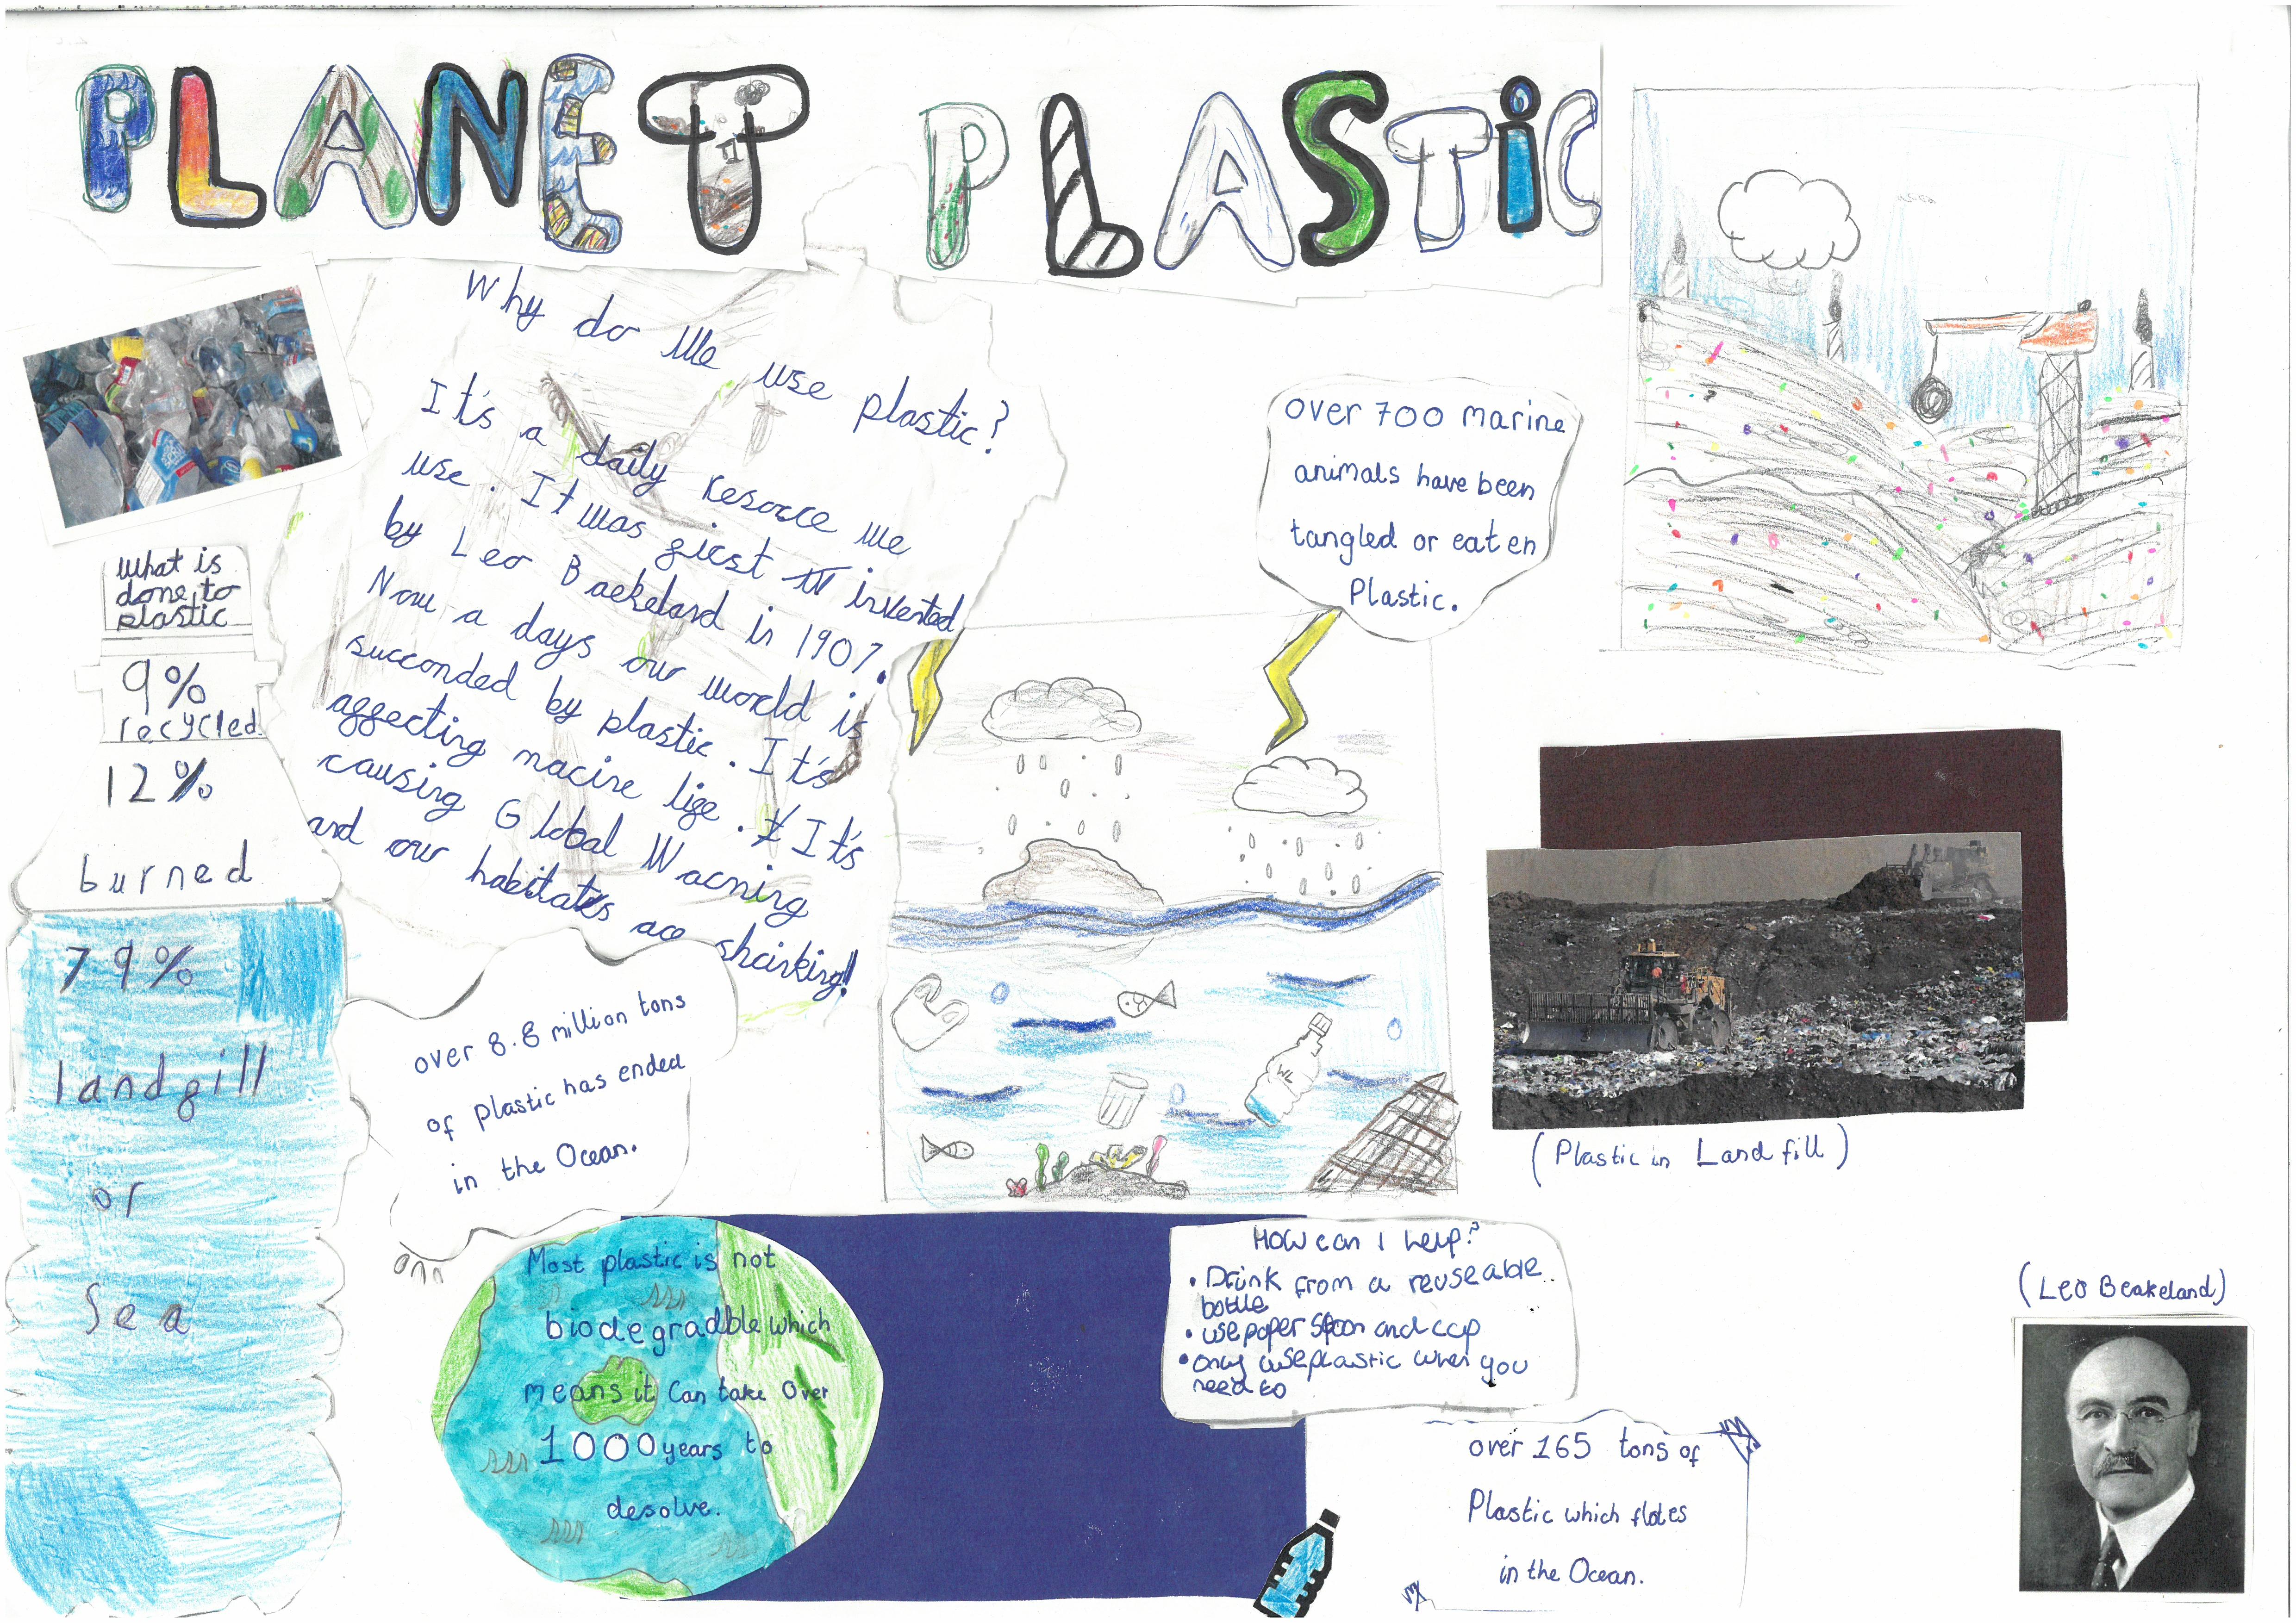 PLANET PLASTiC
Why do we use plastic?
It's a daily resorce we
use. It was first invented
by Leo Baekeland in 1907.
Now a days our world is
succonded by plastic. It's
affecting marine life. It's
causing Global Warning
and our habitats are shrinking!
What is
done to
plastic
9%
recycled
12%
burned
79%
landfill
or
Sea
over 8.8 million tons
of plastic has ended
in the Ocean.
over 700 marine
animals have been
tangled or eaten
Plastic.
WL
(Plastic in Landfill)
Most plastic is not
biodegradble which
means it can take over
1000 years to
desolve.
How can I help?
• Drink from a reuseable
bottle
• use paper spoon and cup
• only use plastic when you
need to
over 165 tons of
Plastic which flotes
in the Ocean.
(Leo Beakeland)